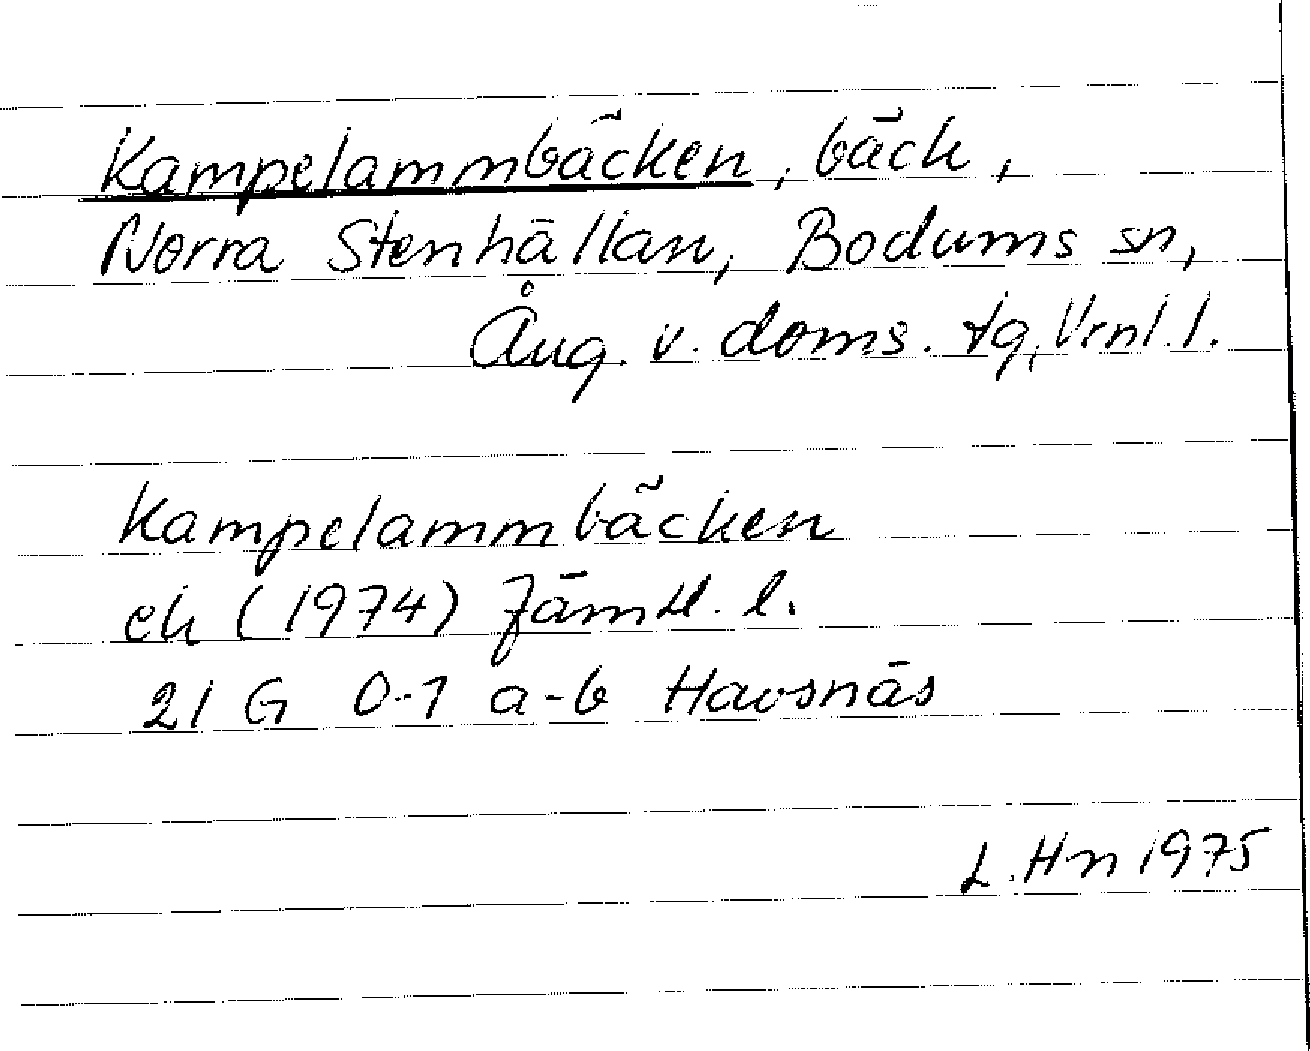 Kampelammbäcken, bäck,
Norra Stenhällan, Bodums sn,
Ång. v. doms. tg, Vrnl. l.
Kampelammbäcken
ek (1974) Jämtl. l.
21 G 0-1 a-b Havsnäs
L. Hn 1975